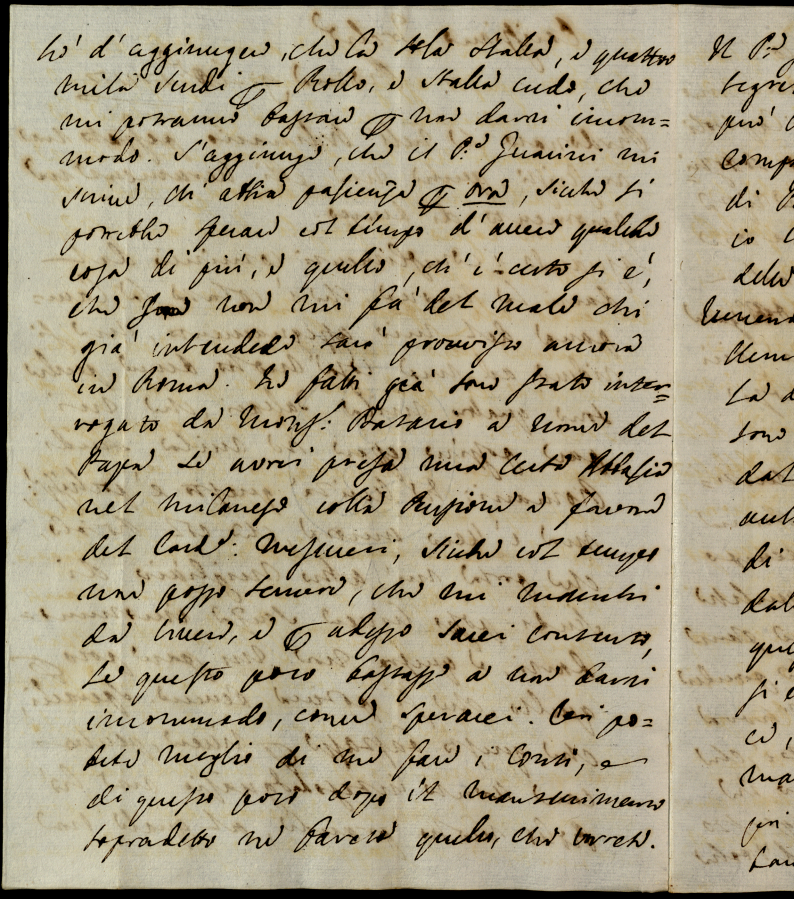 hò d'aggiungere, che la sola stalla, e quattro
mila scudi per Rollo, e stalla credo, che
mi potranno bastare per non darvi incom=
modo. S'aggiunge, che il P.e Guarini mi
scrive, ch' abbia pazienza per ora, sicche si
potrebbe sperare col tempo d'avere qualche
cosa di più, e quello, ch' è certo si è,
che non mi fà del male chi
già intendete sarà provvisto ancora
in Roma. Ed fatti già sono stato inter=
rogato da Mons.r a nome del
Papa se avrei presa una certa Abbazia
nel milanese colla pensione a favore
del Card.e: Mesmeri, sicche col tempo
non posso temere, che mi manchi
da vivere, e per adesso sarei contento,
se questo poco bastasse a non darvi
incommodo, come sperarei. Voi po=
tete meglio di me fare i conti, e
di questo poco dopo il mantenimento
sopradetto ne farete quello, che vorrete.
Il P.e
segre
può
comp
di
io
delle
dal
di
dal
que
si
ce,
ma